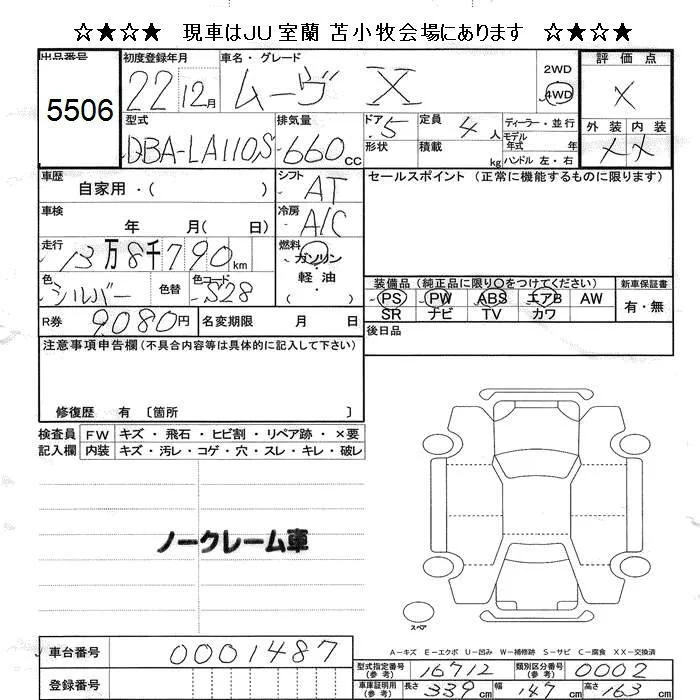 ☆★☆★ 現車はJU室蘭 苫小牧会場にあります ☆★☆★
出品番号 5506
初度登録年月 22 12月
車名・グレード ムーヴ X
2WD
4WD
評価点 X
型式 DBA-LA110S
排気量 660cc
ドア 5
形状
定員 4人
積載 kg
ディーラー・並行
モデル年式 年
ハンドル 左・右
外装 X 内装 X
車歴 自家用・( )
シフト AT
セールスポイント(正常に機能するものに限ります)
車検 年 月( 日)
冷房 A/C
走行 13万8千790km
燃料 ガソリン・軽油
( )
色 シルバー 色替 色コード S28
装備品(純正品に限り○をつけてください) 新車保証書
PS PW ABS エアB AW 有・無
SR ナビ TV カワ
R券 9080円 名変期限 月 日
後日品
注意事項申告欄(不具合内容等は具体的に記入して下さい)
修復歴 有 〔箇所 〕
検査員記入欄
FW キズ・飛石・ヒビ割・リペア跡・×要
内装 キズ・汚レ・コゲ・穴・スレ・キレ・破レ
ノークレーム車
スペア
A−キズ E−エクボ U−凹み W−補修跡 S−サビ C−腐食 XX−交換済
車台番号 0001487
登録番号
型式指定番号(参考) 16712 類別区分番号(参考) 0002
車庫証明用(参考) 長さ 339cm 幅 147cm 高さ 163cm